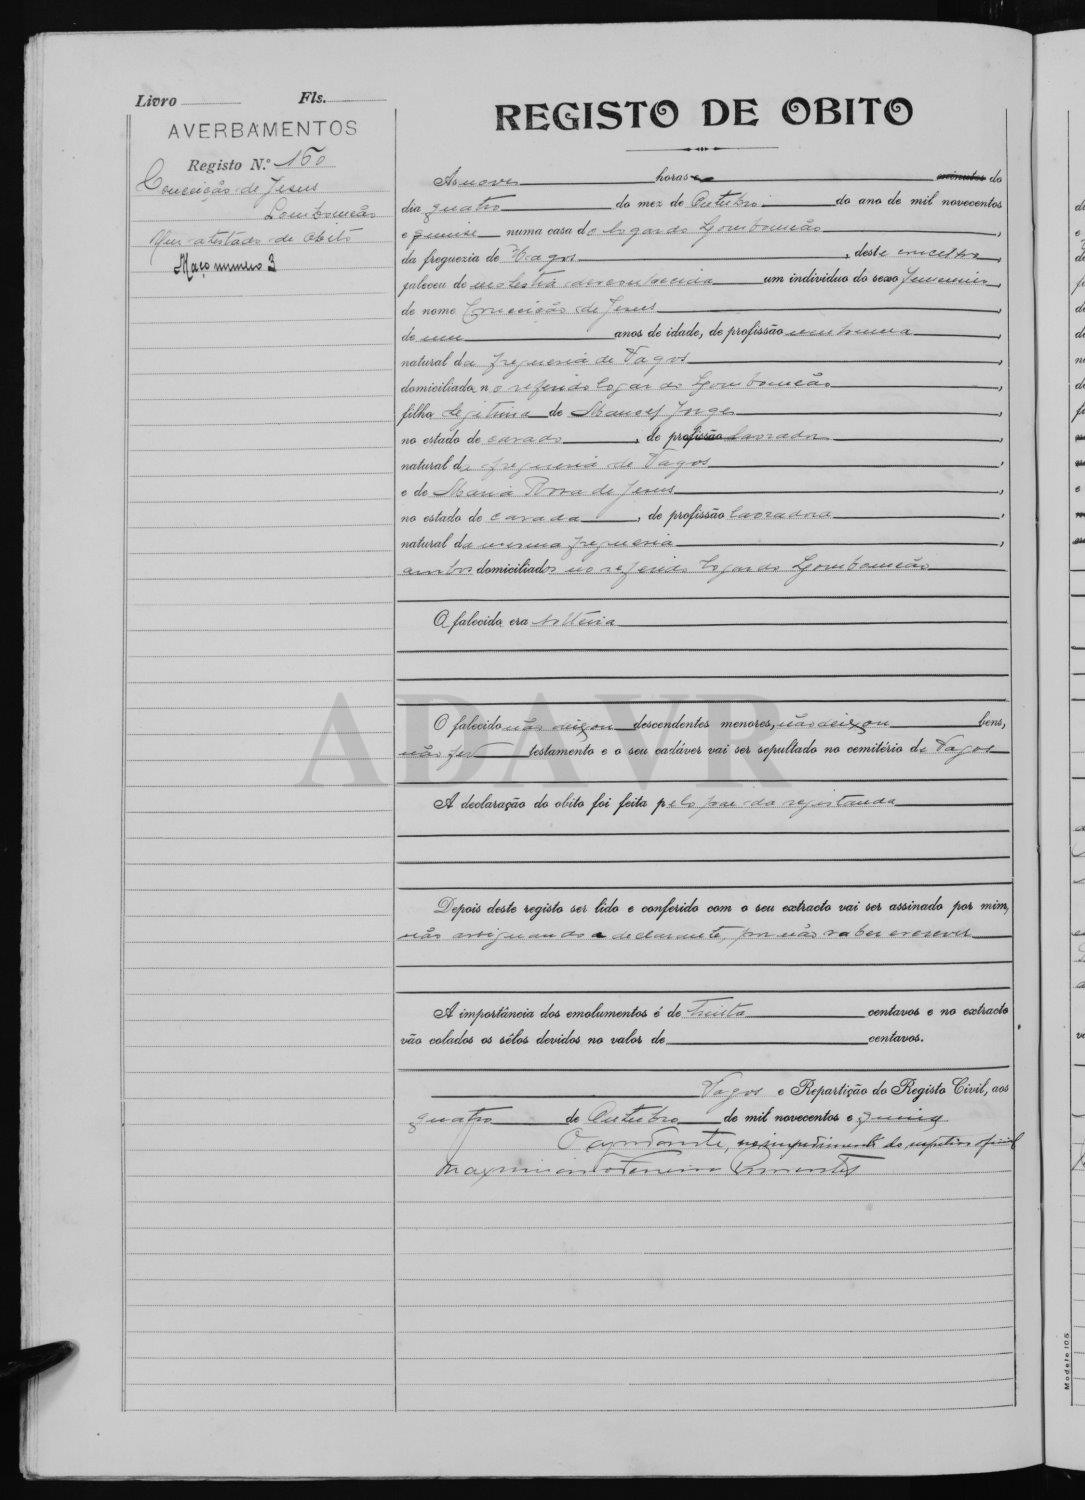 Livro Fls.
AVERBAMENTOS
Registo N.º 160
Conceição de Jesus
Lombomeão
Um atestado de obito
Maço numero 3
REGISTO DE OBITO
As nove horas e minutos do
dia quatro do mez de Outubro do ano de mil novecentos
e quinze numa casa do logar do Lombomeão,
da freguezia de Vagos, deste concelho,
faleceu de molestia desconhecida um individuo do sexo femenino,
de nome Conceição de Jesus,
de um anos de idade, de profissão nenhuma,
natural da freguesia de Vagos,
domiciliada no referido logar do Lombomeão,
filha legitima de Manoel Jorge,
no estado de casado, de profissão lavrador,
natural da freguesia de Vagos,
e de Maria Rosa de Jesus,
no estado de casada, de profissão lavradora,
natural da mesma freguesia,
ambos domiciliados no referido logar do Lombomeão
A falecida era solteira
ADAVR
O falecido não deixou descendentes menores, não deixou bens,
não fez testamento e o seu cadáver vai ser sepultado no cemitério de Vagos
A declaração do obito foi feita pelo pae da registanda
Depois deste registo ser lido e conferido com o seu extracto vai ser assinado por mim,
não assignando o declarante, por não saber escrever
A importância dos emolumentos é de trinta centavos e no extracto
vão colados os sêlos devidos no valor de centavos.
Vagos e Repartição do Registo Civil, aos
quatro de Outubro de mil novecentos e quinze
O ajudante, no impedimento do respétivo oficial
Ferreira
Modelo 105